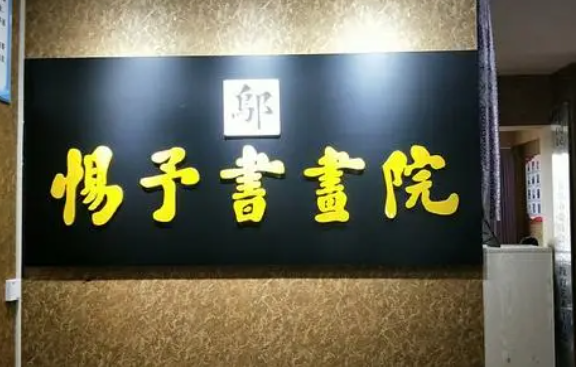 鄔
惕予書畫院